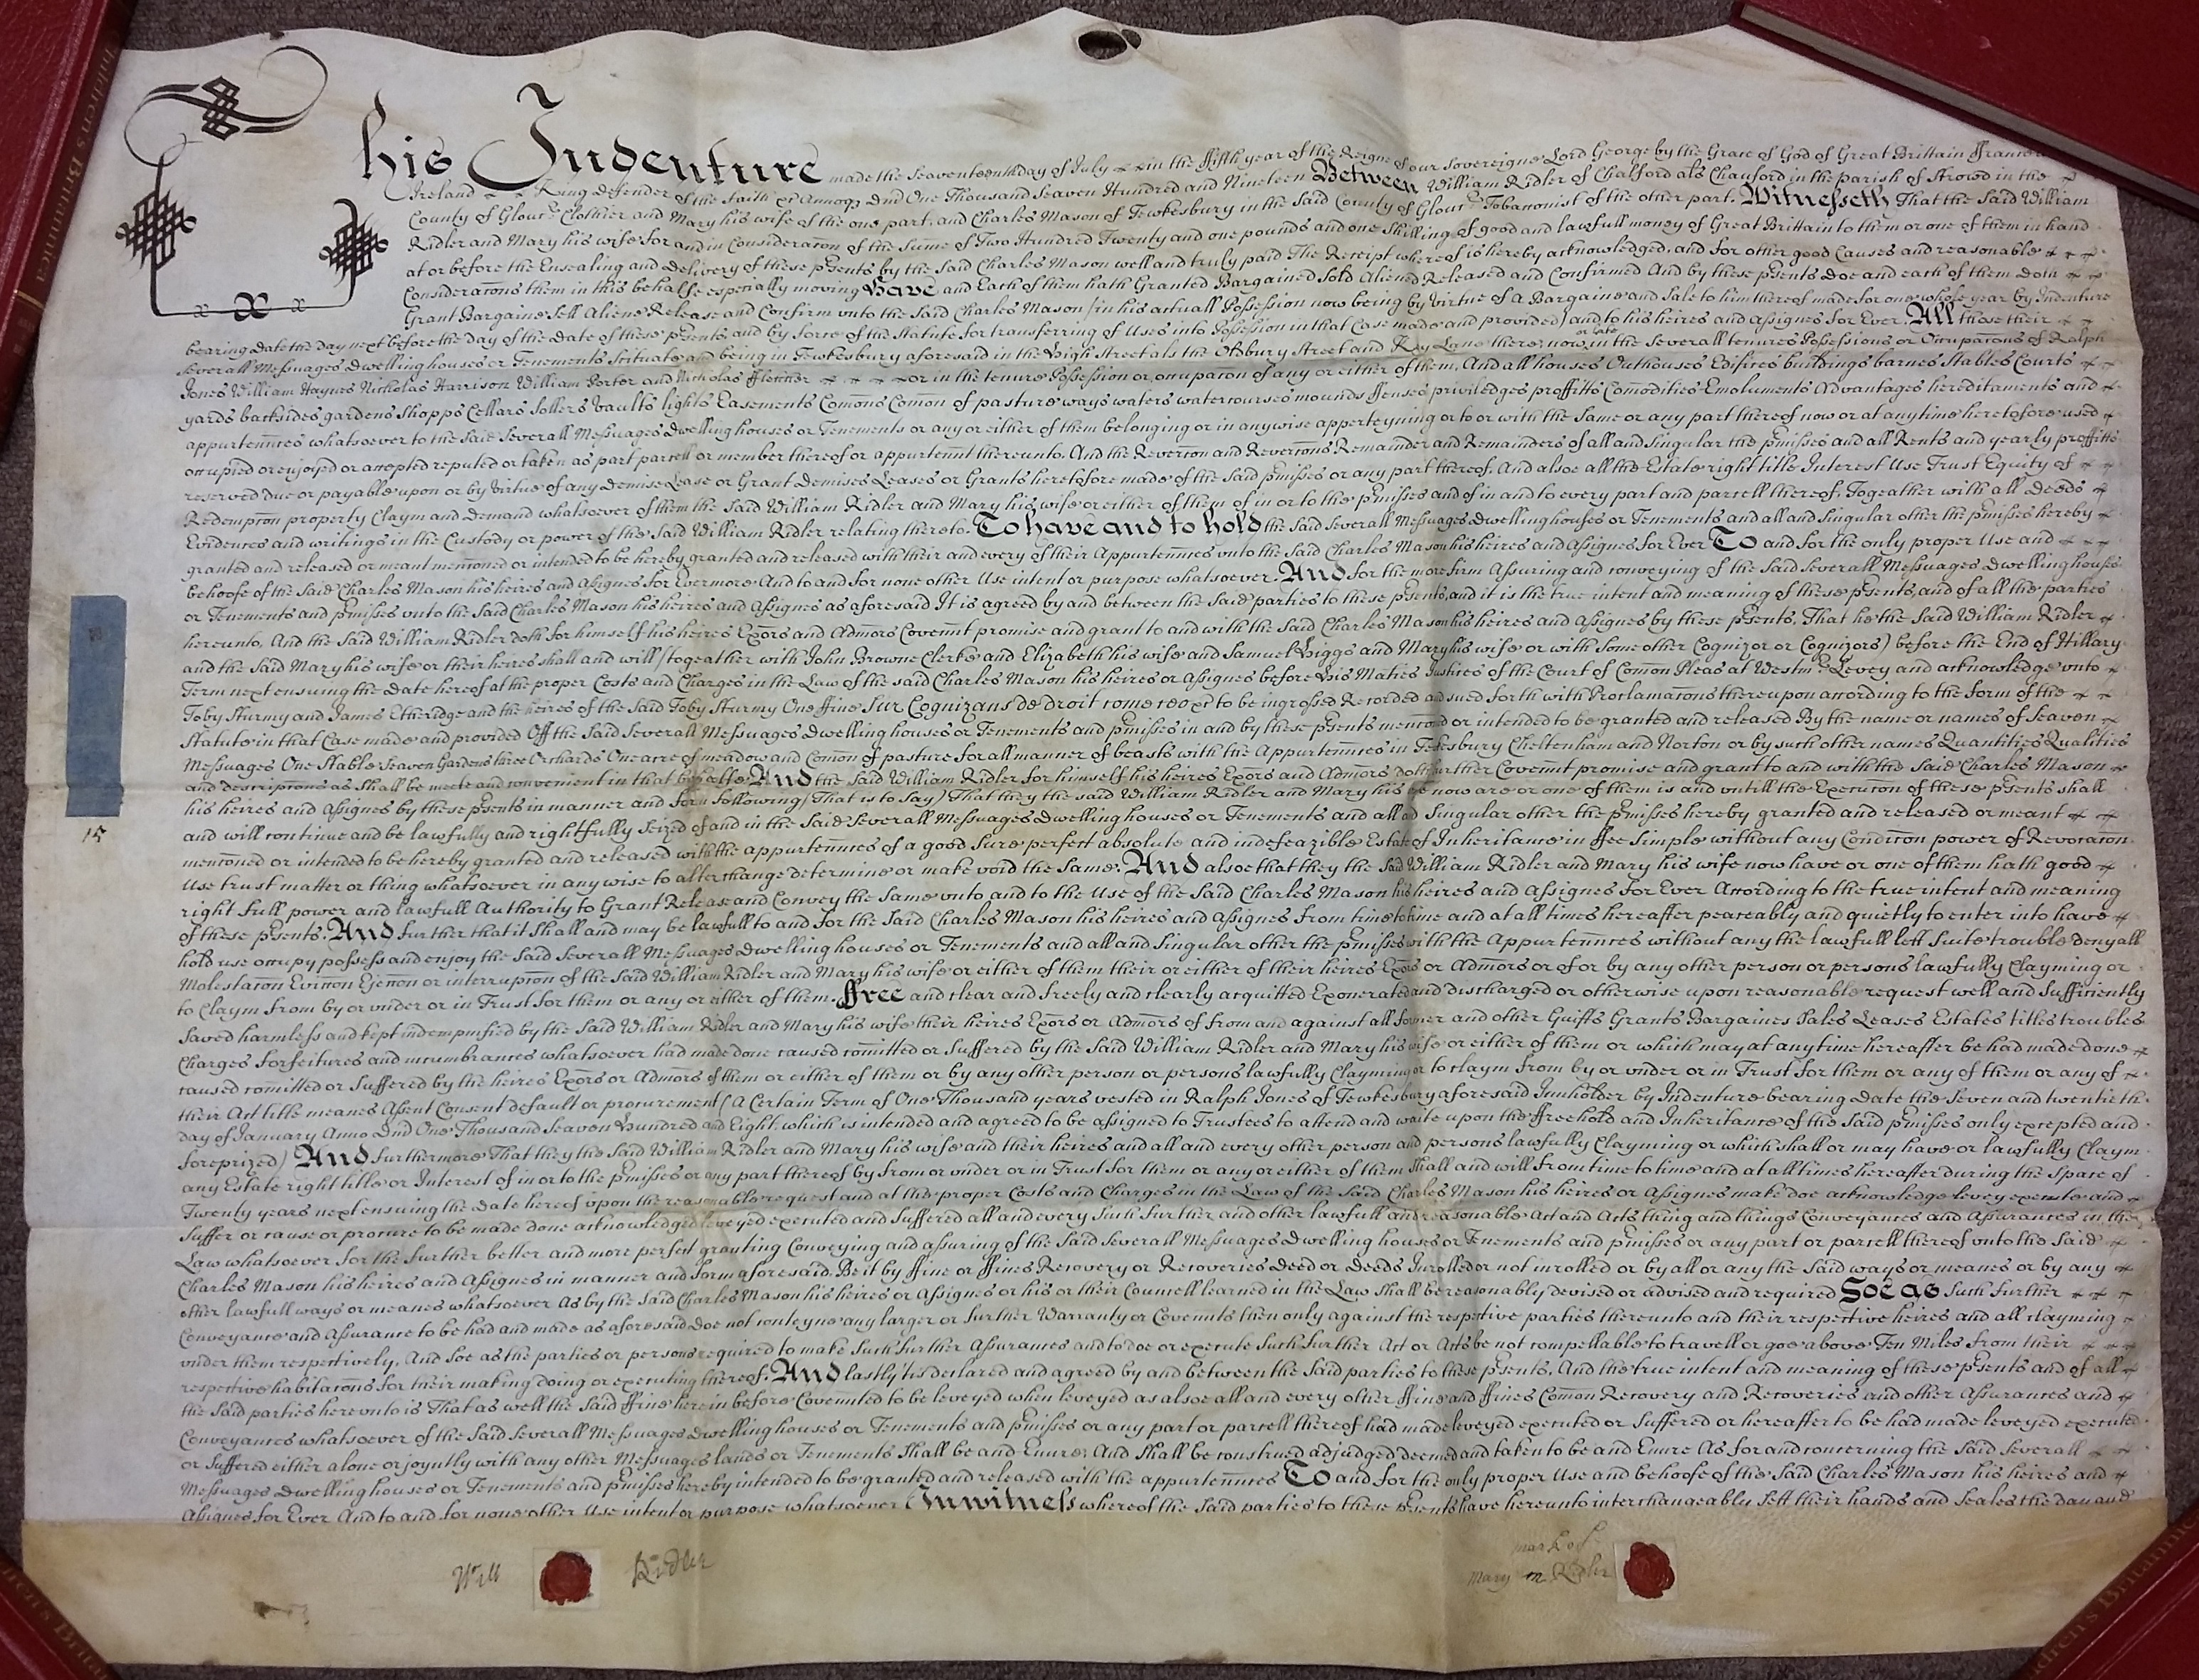 This Indenture made the Seaventeenth day of July in the ffifth year of the Reigne of our Sovereigne Lord George by the Grace of God of Great Brittain ffrance
Ireland King defender of the Faith &c Annoq Dni One Thousand Seaven Hundred and Nineteen Between William Ridler of Chalford als Chauford in the Parish of Strowd in the
County of Glouc Clothier and Mary his wife of the one part, and Charles Mason of Tewkesbury in the Said County of Glouc Tobacconist of the other part. Witnesseth That the Said William
Ridler and Mary his wife for and in Consideracon of the Sume of Two Hundred Twenty and one pounds and one Shilling of good and lawfull money of Great Brittain to them or one of them in hand
at or before the Ensealing and Delivery of these psents by the Said Charles Mason well and truly paid The Receipt whereof is hereby acknowledged, and for other good Causes and reasonable
Consideracons them in this behalfe especially moving Have and Each of them hath Granted Bargained Sold Aliened Released and Confirmed And by these psents doe and each of them doth
Grant Bargaine Sell Aliene Release and Confirm unto the Said Charles Mason (in his actuall Possession now being by Virtue of a Bargaine and Sale to him thereof made for one whole year by Indenture
bearing date the day next before the day of the date of these psents and by force of the Statute for transferring of Uses into Possession in that Case made and provided) and to his heires and assignes for Ever. All those their
or late
Severall Messuages Dwelling houses or Tenements Scituate and being in Tewkesbury aforesaid in the High Street als the Oldbury Street and Key Lane there now in the Severall tenures Possessions or Occupacons of Ralph
Jones William Haynes Nicholas Harrison William Porter and Nicholas ffletcher or in the tenure Possession or occupacon of any or either of them, And all houses Outhouses Edifices buildings barnes Stables Courts
yards backsides gardens Shopps Cellars Sollers Vaults lights Easements Comons Comon of pasture ways waters watercourses mounds ffenses priviledges proffitts Comodities Emoluments Advantages hereditaments and
appurtennces whatsoever to the Said Severall Messuages Dwelling houses or Tenements or any or either of them belonging or in any wise apperteyning or to or with the Same or any part thereof now or at any time heretofore used
occupied or enjoyed or accepted reputed or taken as part parcell or member thereof or appurtennt thereunto. And the Revercon and Revercons Remainder and Remainders of all and Singular the pmisses and all Rents and yearly proffitts
reserved due or payable upon or by Virtue of any Demise Lease or Grant Demises Leases or Grants heretofore made of the Said pmisses or any part thereof. And alsoe all the Estate right title Interest Use Trust Equity of
Redempcon property Claym and Demand whatsoever of them the Said William Ridler and Mary his wife or either of them of in or to the pmisses and of in and to every part and parcell thereof, Togeather with all Deeds
Evidences and writings in the Custody or power of the Said William Ridler relating thereto. To have and to hold the Said Severall Messuages Dwelling houses or Tenements and all and Singular other the pmisses hereby
granted and released or meant menconed or intended to be hereby granted and released with their and every of their Appurtennces unto the Said Charles Mason his heires and Assignes for Ever To and for the only proper Use and
behoofe of the Said Charles Mason his heires and Assignes for Evermore And to and for none other Use intent or purpose whatsoever. And for the more firm Assuring and conveying of the Said Severall Messuages Dwelling houses
or Tenements and pmisses unto the Said Charles Mason his heires and Assignes as aforesaid It is agreed by and between the Said parties to these psents, and it is the true intent and meaning of these psents, and of all the parties
hereunto, And the Said William Ridler doth for himself his heires Exors and Admors Covennt promise and grant to and with the Said Charles Mason his heires and Assignes by these psents, That he the Said William Ridler
and the Said Mary his wife or their heires shall and will (togeather with John Browne Clerke and Elizabeth his wife and Samuel Higgs and Mary his wife or with Some other Cognizor or Cognizors) before the End of Hillary
Term next ensuing the Date hereof at the proper Costs and Charges in the Law of the said Charles Mason his heires or Assignes before His Maties Justices of the Court of Comon Pleas at Westmr Levey and acknowledge unto
Toby Sturmy and James Etheridge and the heires of the Said Toby Sturmy One ffine Sur Cognizans de droit come ceo &c to be ingrossed Recorded and sued forth with Proclamacons thereupon according to the form of the
Statute in that Case made and provided Off the Said Severall Messuages Dwelling houses or Tenements and pmisses in and by these psents menconed or intended to be granted and released By the name or names of Seaven
Messuages One Stable Seaven Gardens three Orchards One acre of meadow and Comon of pasture for all manner of beasts with the Appurtennces in Tewkesbury Cheltenham and Norton or by such other names Quantities Qualities
and descripcons as Shall be meete and convenient in that behalfe. And the Said William Ridler for himself his heires Exors and Admors doth further Covennt promise and grant to and with the Said Charles Mason
his heires and Assignes by these psents in manner and form following (That is to Say) That they the said William Ridler and Mary his wife now are or one of them is and untill the Execucon of these psents shall
and will continue and be lawfully and rightfully Seized of and in the Said Severall Messuages Dwelling houses or Tenements and all and Singular other the pmisses hereby granted and released or meant
menconed or intended to be hereby granted and released with the appurtennces of a good Sure perfect absolute and indefeazible Estate of Inheritance in ffee Simple without any Condicon power of Revocacon
Use trust matter or thing whatsoever in any wise to alter change determine or make void the Same. And alsoe that they the Said William Ridler and Mary his wife now have or one of them hath good
right full power and lawfull Authority to Grant Release and Convey the Same unto and to the Use of the Said Charles Mason his heires and Assignes for Ever According to the true intent and meaning
of these psents. And further that it Shall and may be lawfull to and for the Said Charles Mason his heires and Assignes from time to time and at all times hereafter peaceably and quietly to enter into have
hold use occupy possess and enjoy the Said Severall Messuages Dwelling houses or Tenements and all and Singular other the pmisses with the Appurtennces without any the lawfull lett Suite trouble denyall
Molestacon Eviccon Ejeccon or interrupcon of the Said William Ridler and Mary his wife or either of them their or either of their heires Exors or Admors or of or by any other person or persons lawfully Clayming or
to Claym from by or under or in Trust for them or any or either of them. Free and clear and freely and clearly acquitted Exonerated and discharged or otherwise upon reasonable request well and Sufficiently
Saved harmless and kept indempnified by the Said William Ridler and Mary his wife their heires Exors or Admors of from and against all former and other Guifts Grants Bargaines Sales Leases Estates titles troubles
Charges forfeitures and incumbrances whatsoever had made done caused comitted or Suffered by the Said William Ridler and Mary his wife or either of them or which may at any time hereafter be had made done
caused comitted or Suffered by the heires Exors or Admors of them or either of them or by any other person or persons lawfully Clayming or to claym from by or under or in Trust for them or any of them or any of
their Act title meanes Assent Consent default or procurement (A Certain Term of One Thousand years vested in Ralph Jones of Tewkesbury aforesaid Innholder by Indenture bearing Date the Seven and twentieth
day of January Anno Dni One Thousand Seaven Hundred and Eight, which is intended and agreed to be assigned to Trustees to attend and waite upon the ffreehold and Inheritance of the Said pmisses only excepted and
foreprized) And furthermore That they the Said William Ridler and Mary his wife and their heires and all and every other person and persons lawfully Clayming or which shall or may have or lawfully Claym
any Estate right title or Interest of in or to the pmisses or any part thereof by from or under or in Trust for them or any or either of them Shall and will from time to time and at all times hereafter during the Space of
Twenty years next ensuing the Date hereof upon the reasonable request and at the proper Costs and Charges in the Law of the Said Charles Mason his heires or Assignes make doe acknowledge levey execute and
Suffer or cause or procure to be made done acknowledged leveyed executed and Suffered all and every Such further and other lawfull and reasonable Act and Acts thing and things Conveyances and Assurances in the
Law whatsoever for the further better and more perfect granting Conveying and assuring of the Said Severall Messuages Dwelling houses or Tenements and pmisses or any part or parcell thereof unto the Said
Charles Mason his heires and Assignes in manner and form aforesaid. Be it by ffine or ffines Recovery or Recoveries deed or deeds Inrolled or not inrolled or by all or any the Said ways or meanes or by any
other lawfull ways or meanes whatsoever As by the Said Charles Mason his heires or Assignes or his or their Councell learned in the Law Shall be reasonably devised or advised and required Soe as Such further
Conveyance and Assurance to be had and made as aforesaid doe not conteyne any larger or further Warranty or Covennts then only against the respective parties thereunto and their respective heires and all clayming
under them respectively, And Soe as the parties or persons required to make Such further Assurances and to doe or execute Such further Act or Acts be not compellable to travell or goe above Ten Miles from their
respective habitacons for their making doing or executing thereof. And lastly tis declared and agreed by and between the Said parties to these psents, And the true intent and meaning of these psents and of all
the Said parties hereunto is That as well the Said ffine herein before Covennted to be leveyed when leveyed as alsoe all and every other ffine and ffines Comon Recovery and Recoveries and other Assurances and
Conveyances whatsoever of the Said Severall Messuages Dwelling houses or Tenements and pmisses or any part or parcell thereof had made leveyed executed or Suffered or hereafter to be had made leveyed executed
or Suffered either alone or joyntly with any other Messuages lands or Tenements Shall be and Enure And Shall be construed adjudged deemed and taken to be and Enure As for and concerning the Said Severall
Messuages Dwelling houses or Tenements and pmisses hereby intended to be granted and released with the appurtennces To and for the only proper Use and behoofe of the Said Charles Mason his heires and
Assignes for Ever And to and for none other Use intent or purpose whatsoever In witness whereof the Said parties to these psents have hereunto interchangeably Sett their hands and Seales the day and
15
Will Ridler
mark of
Mary m Ridler
Children's Britannica